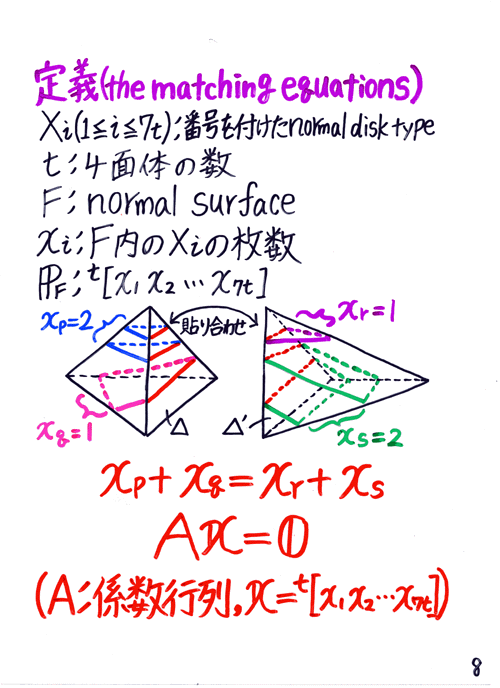 定義(the matching equations)
Xi(1≦i≦7t);番号を付けたnormal disk type
t;4面体の数
F;normal surface
xi;F内のXiの枚数
ⅠPF;ᵗ[x₁ x₂ … x₇ₜ]
xp=2
貼り合わせ
xr=1
xq=1
Δ
Δ'
xs=2
xp+xq=xr+xs
A𝕏=𝟘
(A;係数行列,𝕏=ᵗ[x₁ x₂…x₇ₜ])
8